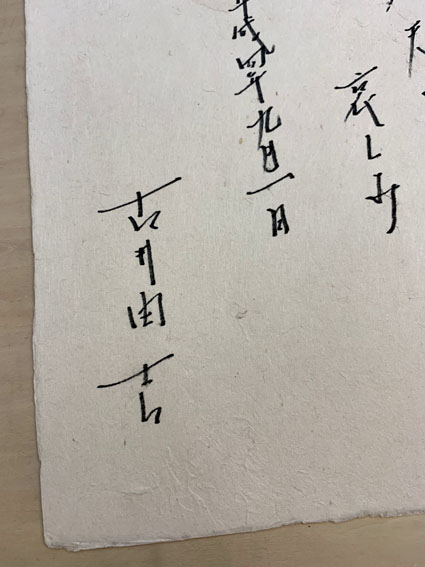 哀しみ
平成四年九月一日
古井由吉